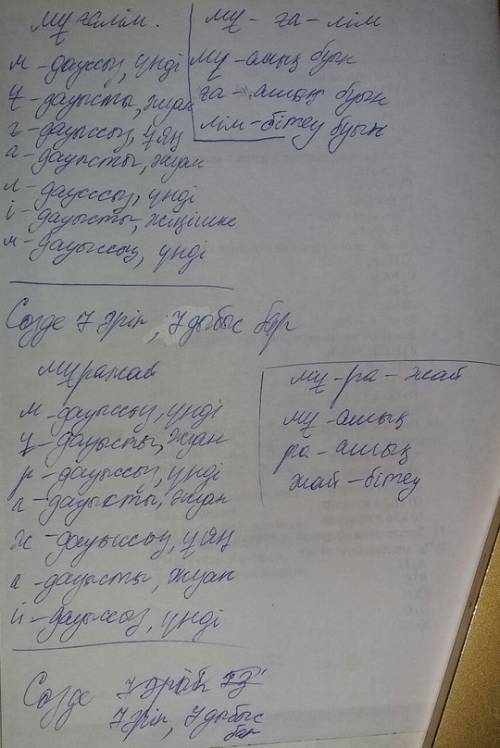 мұғалім.
м-дауыссыз, үнді
ұ-дауысты, жуан
ғ-дауыссыз, ұяң
а-дауысты, жуан
л-дауыссыз, үнді
і-дауысты, жіңішке
м-дауыссыз, үнді
мұ-ға-лім
мұ-ашық буын
ға-ашық буын
лім-бітеу буын
Сөзде 7 әріп, 7 дыбыс бар
мұражай
м-дауыссыз, үнді
ұ-дауысты, жуан
р-дауыссыз, үнді
а-дауысты, жуан
ж-дауыссыз, ұяң
а-дауысты, жуан
й-дауыссыз, үнді
мұ-ра-жай
мұ-ашық
ра-ашық
жай-бітеу
Сөзде
7 әріп, 7 дыбыс
бар